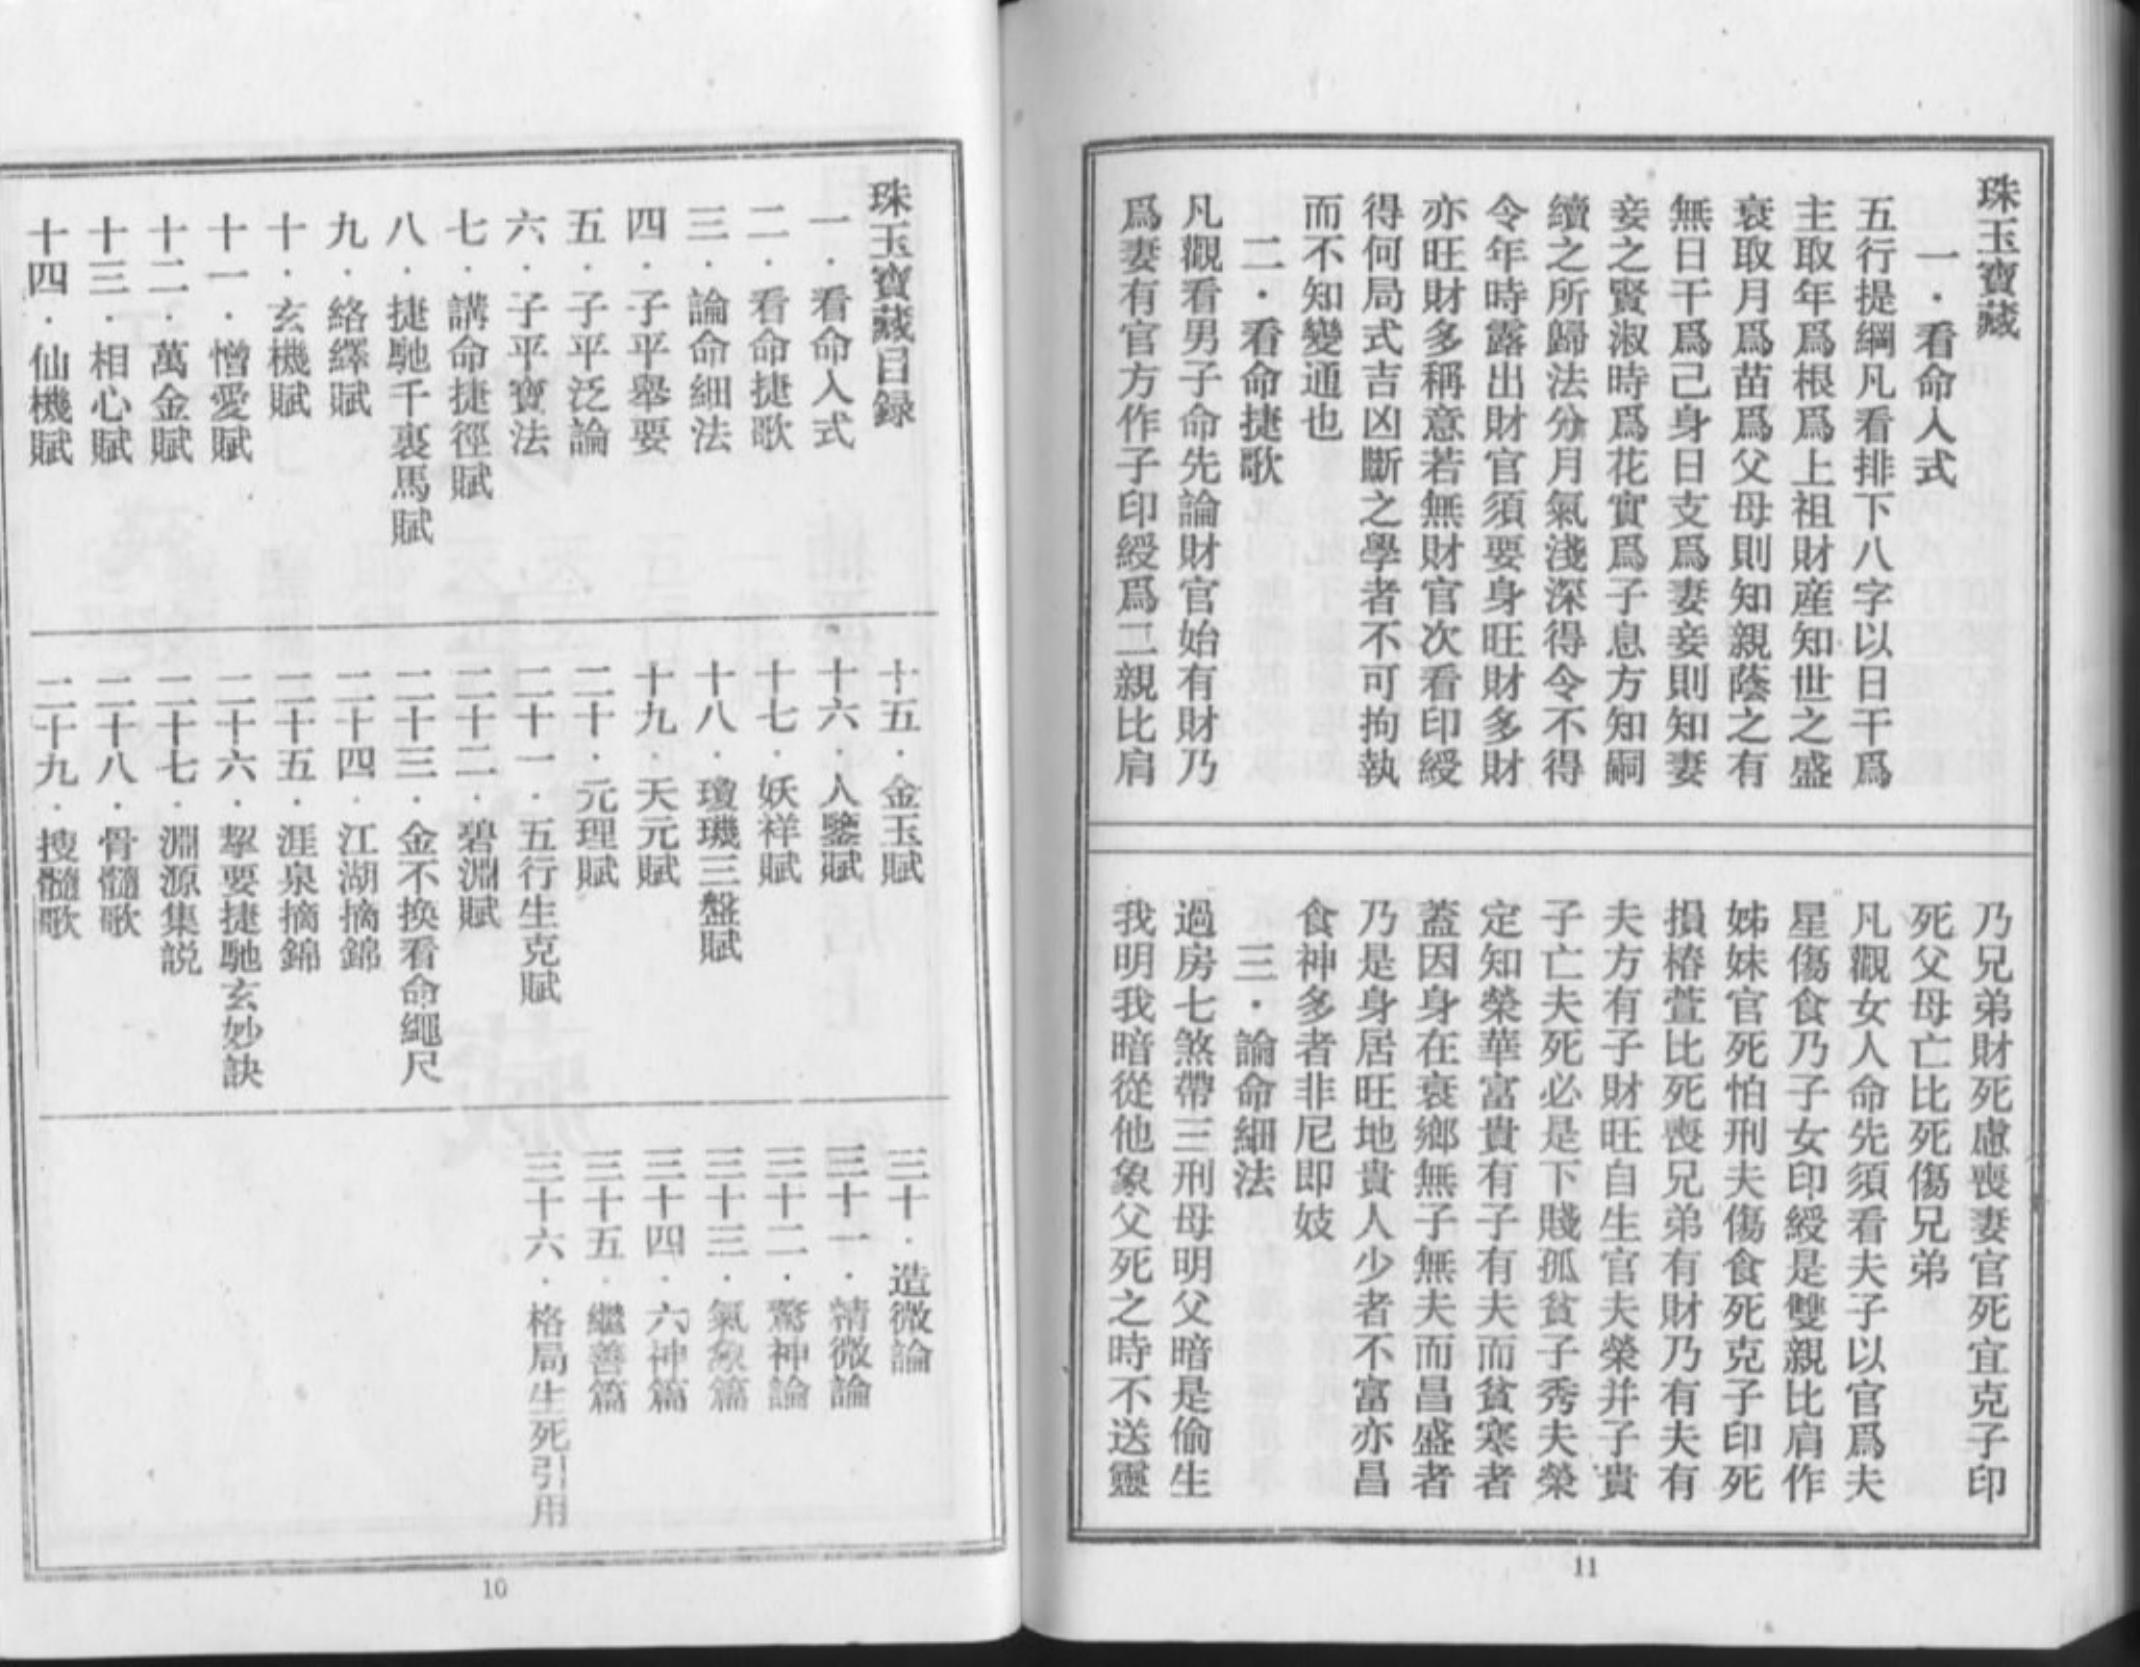 珠玉寶藏目録
一．看命入式
二．看命捷歌
三．論命細法
四．子平舉要
五．子平泛論
六．子平寶法
七．講命捷徑賦
八．捷馳千裏馬賦
九．絡繹賦
十．玄機賦
十一．憎愛賦
十二．萬金賦
十三．相心賦
十四．仙機賦
十五．金玉賦
十六．人鑒賦
十七．妖祥賦
十八．瓊璣三盤賦
十九．天元賦
二十．元理賦
二十一．五行生克賦
二十二．碧淵賦
二十三．金不換看命繩尺
二十四．江湖摘錦
二十五．涯泉摘錦
二十六．挈要捷馳玄妙訣
二十七．淵源集説
二十八．骨髓歌
二十九．搜髓歌
三十．造微論
三十一．精微論
三十二．驚神論
三十三．氣象篇
三十四．六神篇
三十五．繼善篇
三十六．格局生死引用
10
珠玉寶藏
一．看命入式
五行提綱凡看排下八字以日干爲
主取年爲根爲上祖財産知世之盛
衰取月爲苗爲父母則知親蔭之有
無日干爲己身日支爲妻妾則知妻
妾之賢淑時爲花實爲子息方知嗣
續之所歸法分月氣淺深得令不得
令年時露出財官須要身旺財多財
亦旺財多稱意若無財官次看印綬
得何局式吉凶斷之學者不可拘執
而不知變通也
二．看命捷歌
凡觀看男子命先論財官始有財乃
爲妻有官方作子印綬爲二親比肩
乃兄弟財死慮喪妻官死宜克子印
死父母亡比死傷兄弟
凡觀女人命先須看夫子以官爲夫
星傷食乃子女印綬是雙親比肩作
姊妹官死怕刑夫傷食死克子印死
損椿萱比死喪兄弟有財乃有夫有
夫方有子財旺自生官夫榮并子貴
子亡夫死必是下賤孤貧子秀夫榮
定知榮華富貴有子有夫而貧寒者
蓋因身在衰鄉無子無夫而昌盛者
乃是身居旺地貴人少者不富亦昌
食神多者非尼即妓
三．論命細法
過房七煞帶三刑母明父暗是偷生
我明我暗從他象父死之時不送靈
11